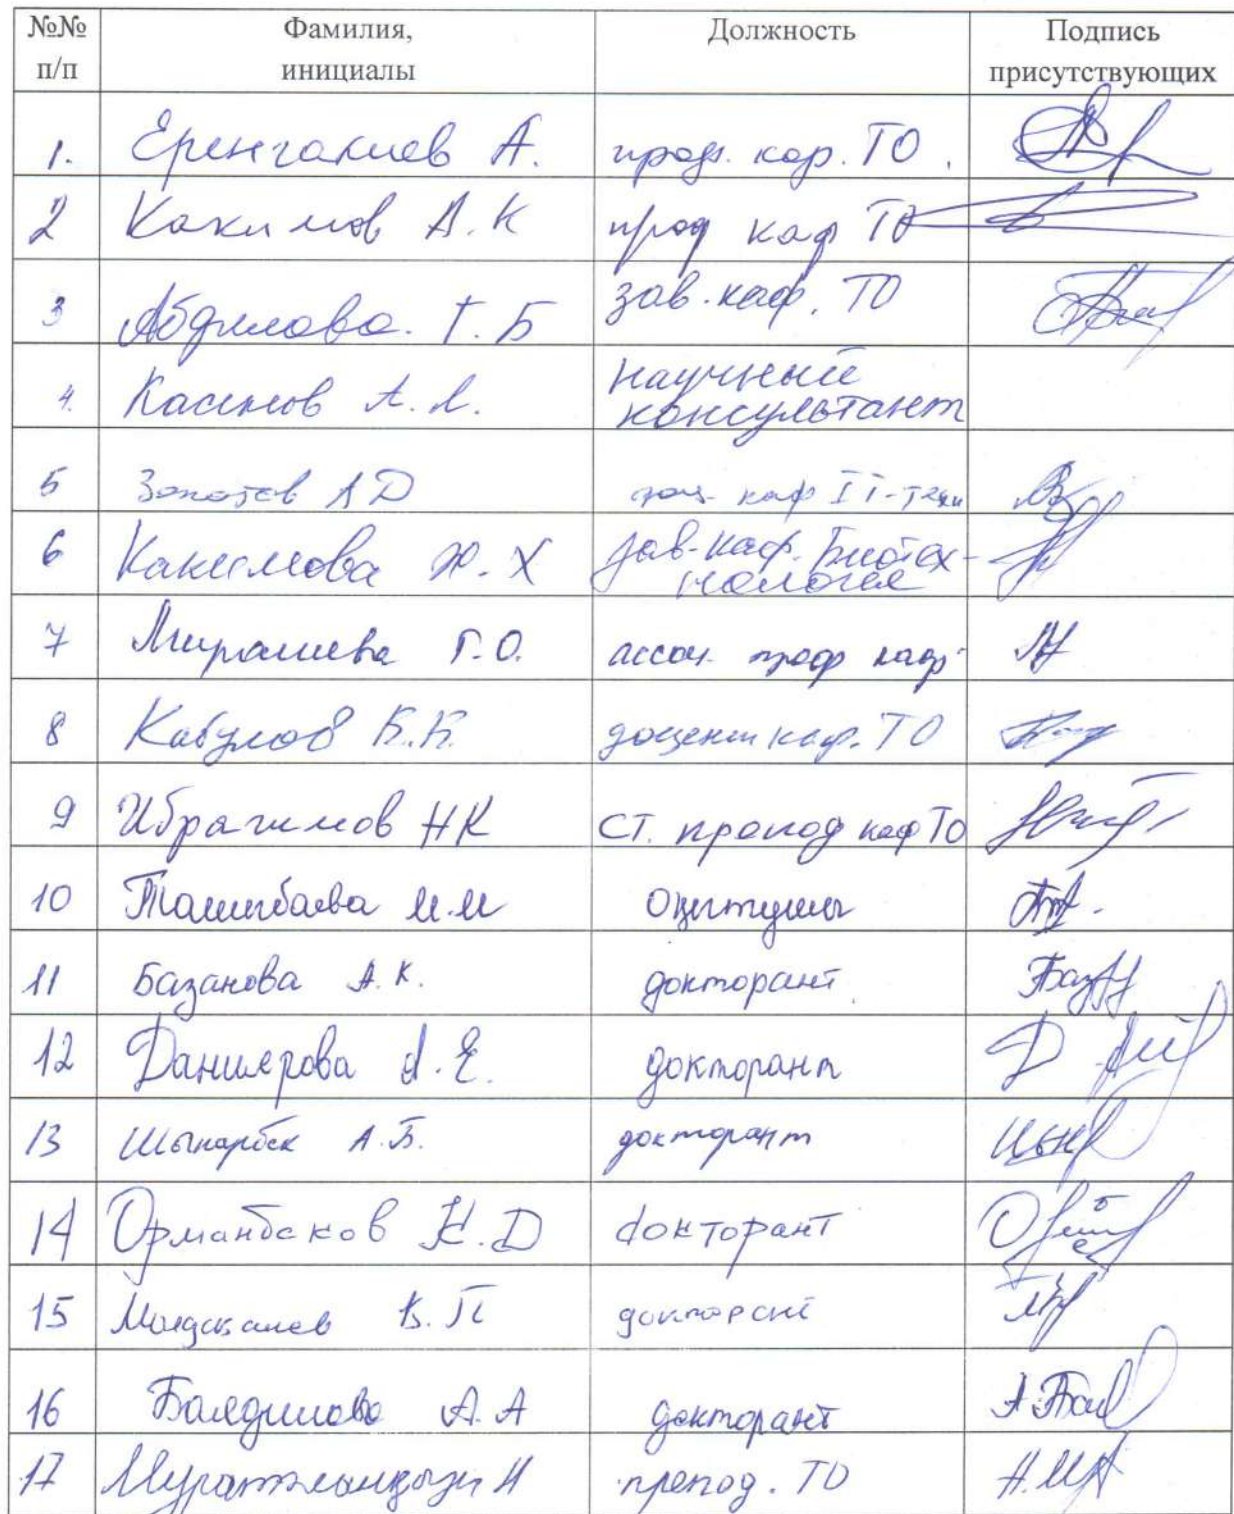 №№ п/п Фамилия, инициалы Должность Подпись присутствующих
1. Еренгалиев А. проф. каф. ТО.
2 Какимов А.К проф каф ТО
3 Абдилова. Г.Б зав. каф. ТО
4. Касенов А.Л. научный консультант
5 Золотов АД каф
6 Какимова Ж.Х зав. каф. Биотехнология
7 Мирашева Г.О. ассоц. проф каф
8 Кабулов Б.Б. доцент каф. ТО
9 Ибрагимов НК ст. препод каф ТО
10 Ташыбаева М.М оқытушы
11 Базанова А.К. докторант
12 Даниярова А.Е. докторант
13 Шынарбек А.Б. докторант
14 Орманбеков Е.Д докторант
15 докторант
16 Баядилова А.А докторант
17 препод. ТО